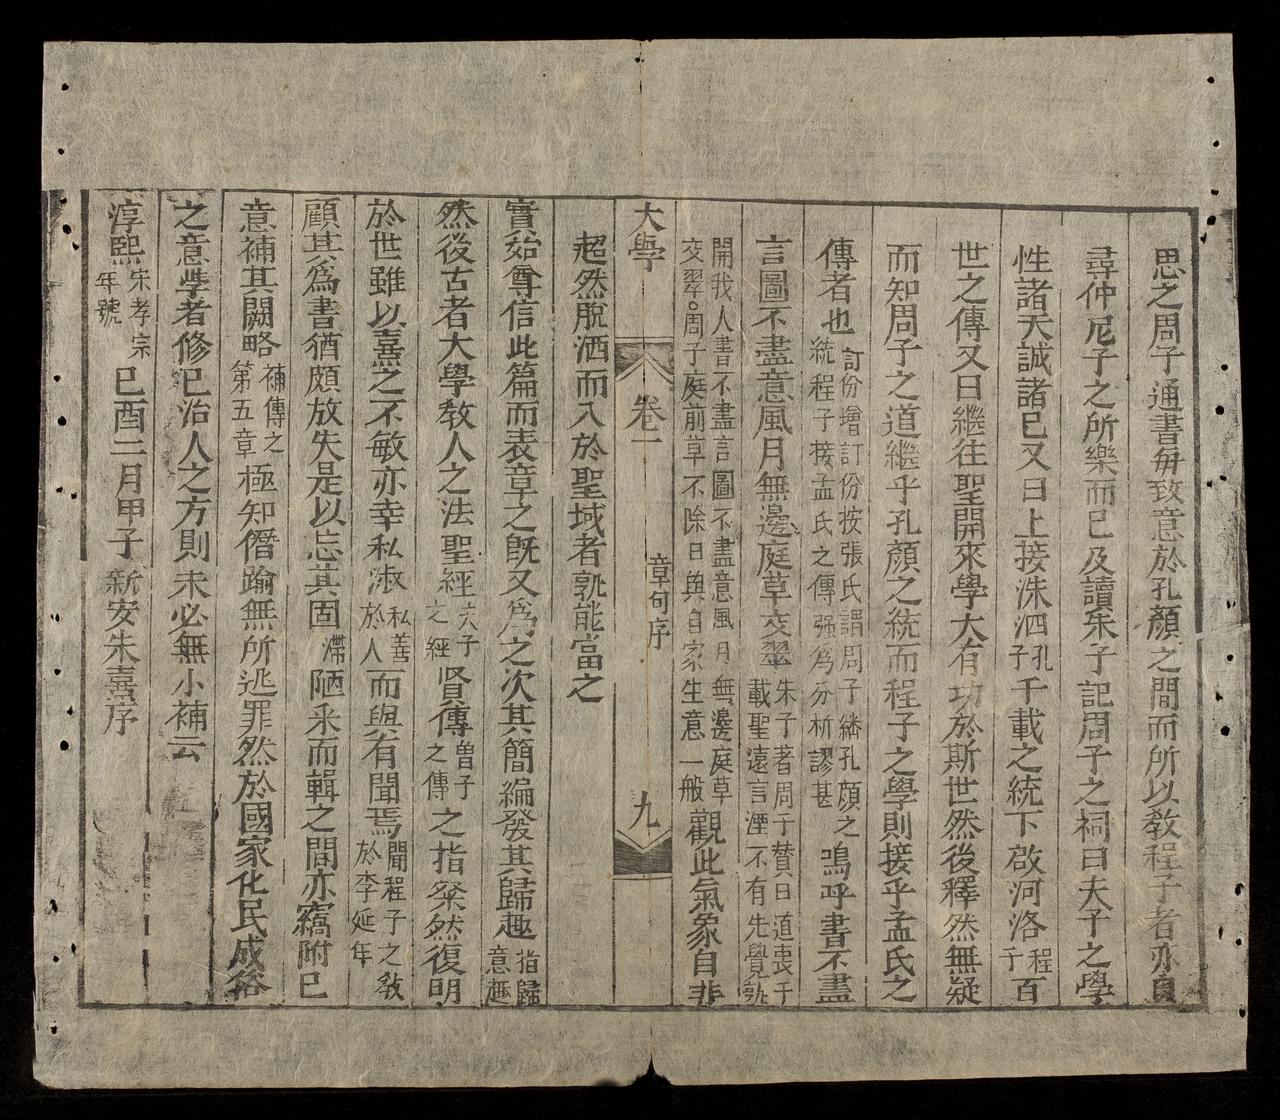 思之周子通書每致意於孔顏之間而所以敎程子者亦自
尋仲尼子之所樂而已及讀朱子記周子之祠曰夫子之學
性諸天誠諸已又曰上接洙泗孔子千載之統下啟河洛程子百
世之傳又曰繼往聖開來學大有功於斯世然後釋然無疑
而知周子之道繼乎孔顏之統而程子之學則接乎孟氏之
傳者也訂份增訂份按張氏謂周子綉孔顔之統程子接孟氏之傳强為分析謬甚嗚呼書不盡
言圖不盡意風月無邊庭草交翠朱子著周子賛曰道喪千載聖遠言湮不有先覺孰
開我人書不盡言圖不盡意風月無邊庭草交翠。周子庭前草不除曰與自家生意一般觀此氣象自非
超然脫洒而入於聖域者孰能當之
大學 卷一 章句序 九
實始尊信此篇而表章之旣又爲之次其簡編發其歸趣指歸意趣
然後古者大學敎人之法聖經六子之經賢傳曽子之傳之指粲然復明
於世雖以熹之不敏亦幸私淑私善於人而與有聞焉聞程子之敎於李延年
顧其爲書猶頗放失是以忘其固滯陋釆而輯之間亦竊附已
意補其闕略補傳之第五章極知僭踰無所逃罪然於國家化民成俗
之意學者修已治人之方則未必無小補云
淳熙宋孝宗年號已酉二月甲子新安朱熹序